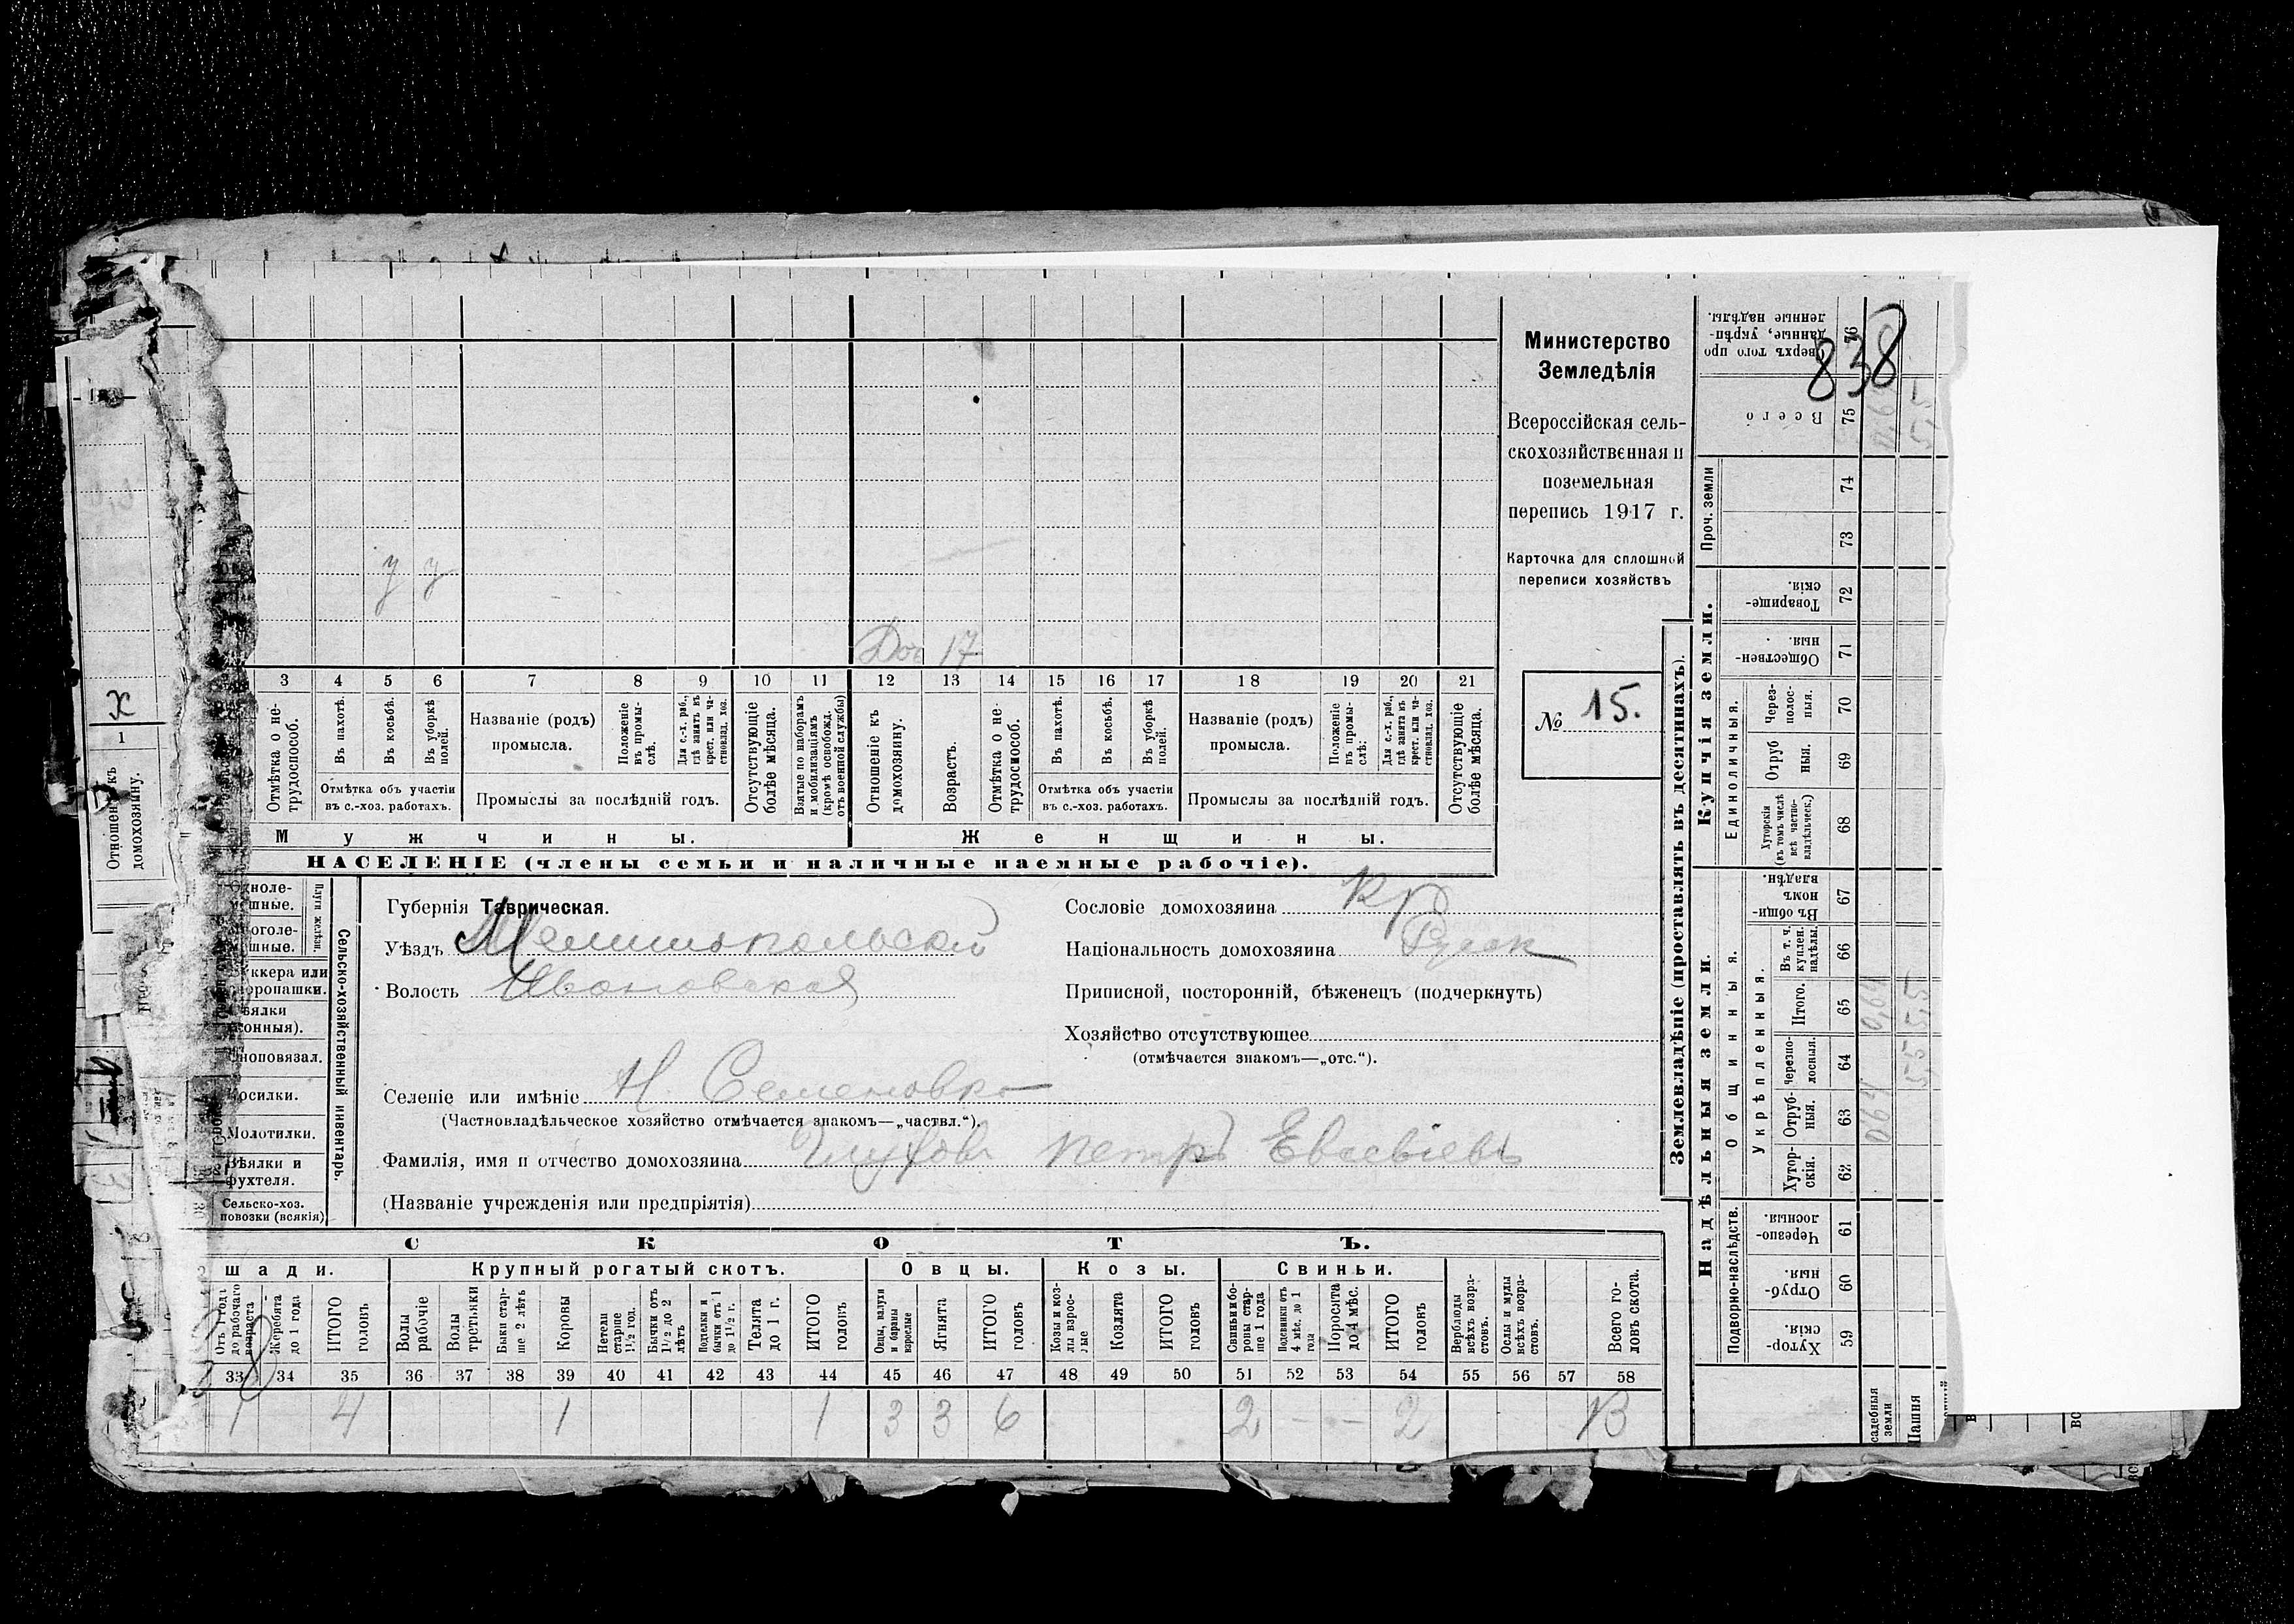 838
Министерство
Земледѣлія
Всероссійская сель-
скохозяйственная и
поземельная
перепись 1917 г.
Карточка для сплошной
переписи хозяйствъ
№ 15.
у у
Доч 17
3 4 5 6 7 8 9 10 11 12 13 14 15 16 17 18 19 20 21
Отмѣтка о не-
трудоспособ.
Въ пахотѣ.
Въ косьбѣ.
Въ уборкѣ
полей.
Отмѣтка объ участіи
въ с.-хоз. работахъ.
Названіе (родъ)
промысла.
Положеніе
въ промы-
слѣ.
Для с.-х. раб.,
гдѣ занятъ въ
крест. или ча-
стновлад. хоз.
Промыслы за послѣдній годъ.
Отсутствующіе
болѣе мѣсяца.
Взятые по наборамъ
и мобилизаціямъ
(кромѣ освобожд.
отъ военной службы)
Отношеніе къ
домохозяину.
Возрастъ.
Отмѣтка о не-
трудоспособ.
Въ пахотѣ.
Въ косьбѣ.
Въ уборкѣ
полей.
Отмѣтка объ участіи
въ с.-хоз. работахъ.
Названіе (родъ)
промысла.
Положеніе
въ промы-
слѣ:
Для с.-х. раб.,
гдѣ занята въ
крест. или ча-
стновлад. хоз.
Промыслы за послѣдній годъ.
Отсутствующіе
болѣе мѣсяца.
Мужчины.
Женщины.
НАСЕЛЕНІЕ (члены семьи и наличные наемные рабочіе).
х
1
Отношеніе къ
домохозяину.
Плуги желѣзн.
ккера или
Сноповязал.
Косилки.
Молотилки.
Вѣялки и
фухтеля.
Сельско-хоз.
повозки (всякія)
Сельско-хозяйственный инвентарь.
Губернія Таврическая.
Уѣздъ Мелитопольскій
Волость Ивановская
Селеніе или имѣніе Н. Семеновка
(Частновладѣльческое хозяйство отмѣчается знакомъ—„частвл.“).
Фамилія, имя и отчество домохозяина Глуховъ Петръ Евсевіевъ
(Названіе учрежденія или предпріятія)
Сословіе домохозяина кр
Національность домохозяина Русск
Приписной, посторонній, бѣженецъ (подчеркнуть)
Хозяйство отсутствующее
(отмѣчается знакомъ—„отс.“).
СКОТЪ.
шади.
Крупный рогатый скотъ.
Овцы.
Козы.
Свиньи.
Отъ 1 года
до рабочаго
возраста
Жеребята -
до 1 года
ИТОГО
головъ
Волы
рабочіе
Волы
третьяки
Быки стар-
ше 2 лѣтъ
Коровы
Нетели
старше
1½ год.
Бычки отъ
1½ до 2
лѣтъ
Подтелки и
бычки отъ 1
до 1½ г.
Телята
до 1 г.
ИТОГО
головъ
Овцы, валухи
и бараны
взрослые
Ягнята
ИТОГО
головъ
Козы и коз-
лы взрос-
лые
Козлята
ИТОГО
головъ
Свиньи и бо-
ровы стар-
ше 1 года
Подсвинки отъ
4 мѣс. до 1
года
Поросята
до 4 мѣс.
ИТОГО
головъ
Верблюды
всѣхъ возра-
стовъ.
Ослы и мулы
всѣхъ возра-
стовъ.
Всего го-
ловъ скота.
33 34 35 36 37 38 39 40 41 42 43 44 45 46 47 48 49 50 51 52 53 54 55 56 57 58
1 4 1 1 3 3 6 2 - - 2 13
Землевладѣніе (проставлять въ десятинахъ).
Надѣльныя земли.
Купчія земли.
Подворно-наслѣдств.
Общинныя.
Укрѣпленныя.
Единоличныя.
Проч. земли
Хутор-
скія.
Отруб-
ныя.
Черезпо-
лосныя.
Хутор-
скія.
Отруб-
ныя.
Черезпо-
лосныя.
Итого.
Въ т. ч.
куплен.
надѣлы.
Въ общи-
номъ
владѣн.
Хуторскія
(въ томъ числѣ
всѣ частно-
владѣльческ.)
Отруб
ныя.
Через-
полос-
ныя.
Обществен-
ныя.
Товарище-
скія.
Всего
Сверхъ того про
данные, укрѣп-
ленные надѣлы.
59 60 61 62 63 64 65 66 67 68 69 70 71 72 73 74 75 76
садебныя
земли
0,64 0,64 0,64
Пашня
5,5 5,5 5,5